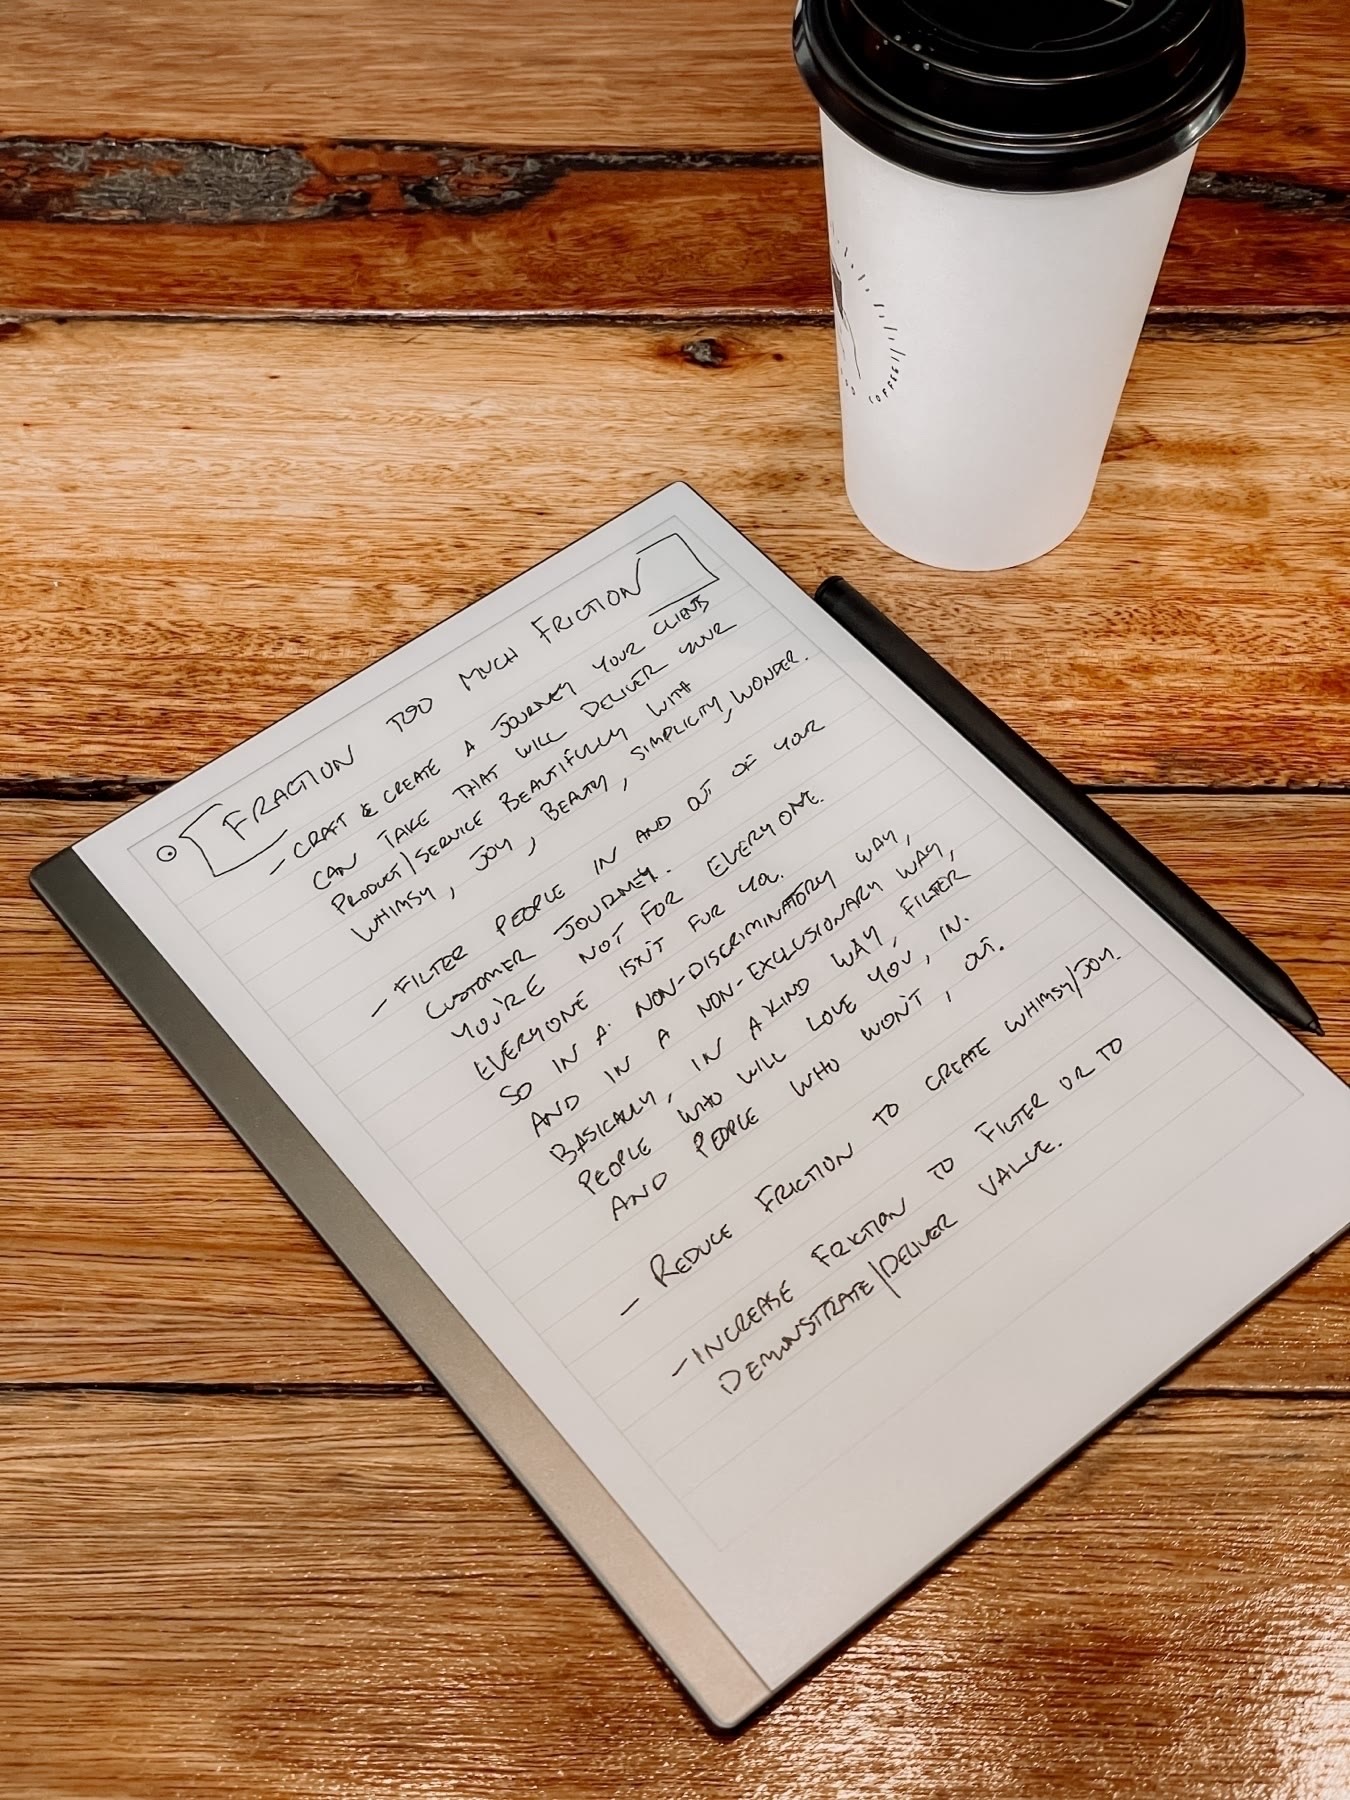 FRACTION TOO MUCH FRICTION
- CRAFT & CREATE A JOURNEY YOUR CLIENTS
CAN TAKE THAT WILL DELIVER YOUR
PRODUCT/SERVICE BEAUTIFULLY WITH
WHIMSY, JOY, BEAUTY, SIMPLICITY, WONDER.
- FILTER PEOPLE IN AND OUT OF YOUR
CUSTOMER JOURNEY.
YOU'RE NOT FOR EVERYONE.
EVERYONE ISN'T FOR YOU.
SO IN A NON-DISCRIMINATORY WAY,
AND IN A NON-EXCLUSIONARY WAY,
BASICALLY, IN A KIND WAY, FILTER
PEOPLE WHO WILL LOVE YOU, IN.
AND PEOPLE WHO WON'T, OUT.
- REDUCE FRICTION TO CREATE WHIMSY/JOY.
- INCREASE FRICTION TO FILTER OR TO
DEMONSTRATE/DELIVER VALUE.